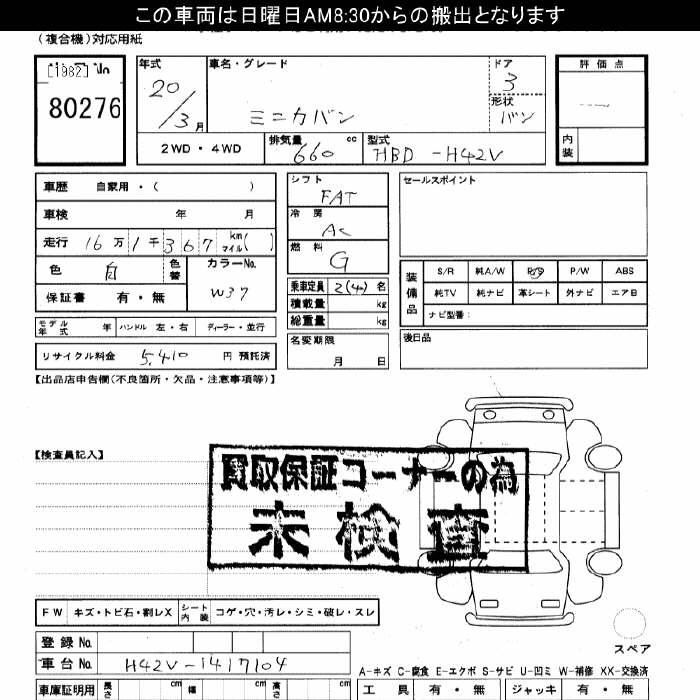 この車両は日曜日AM8:30からの搬出となります
(複合機)対応用紙
[1982] No
80276
年式
20/3月
車名・グレード
ミニカバン
ドア
3
形状
バン
評価点
内装
2WD・4WD
排気量 660 cc
型式 HBD-H42V
車歴 自家用・( )
車検 年 月
走行 16万1千367 km マイル( )
色 白 色替
カラーNo. W37
保証書 有・無
モデル年式 年 ハンドル 左・右 ディーラー・並行
リサイクル料金 5,410 円 預託済
シフト FAT
冷房 AC
燃料 G
乗車定員 2(4)名
積載量 kg
総重量 kg
名変期限
月 日
セールスポイント
装備品
S/R 純A/W P/S P/W ABS
純TV 純ナビ 革シート 外ナビ エアB
ナビ型番:
後日品
【出品店申告欄(不良箇所・欠品・注意事項等)】
【検査員記入】
買取保証コーナーの為
未検査
FW キズ・トビ石・割レX シート内装 コゲ・穴・汚レ・シミ・破レ・スレ
スペア
登録No.
車台No. H42V-1417104
A-キズ C-腐食 E-エクボ S-サビ U-凹ミ W-補修 XX-交換済
車庫証明用 長さ cm 幅 cm 高さ cm
工具 有・無 ジャッキ 有・無